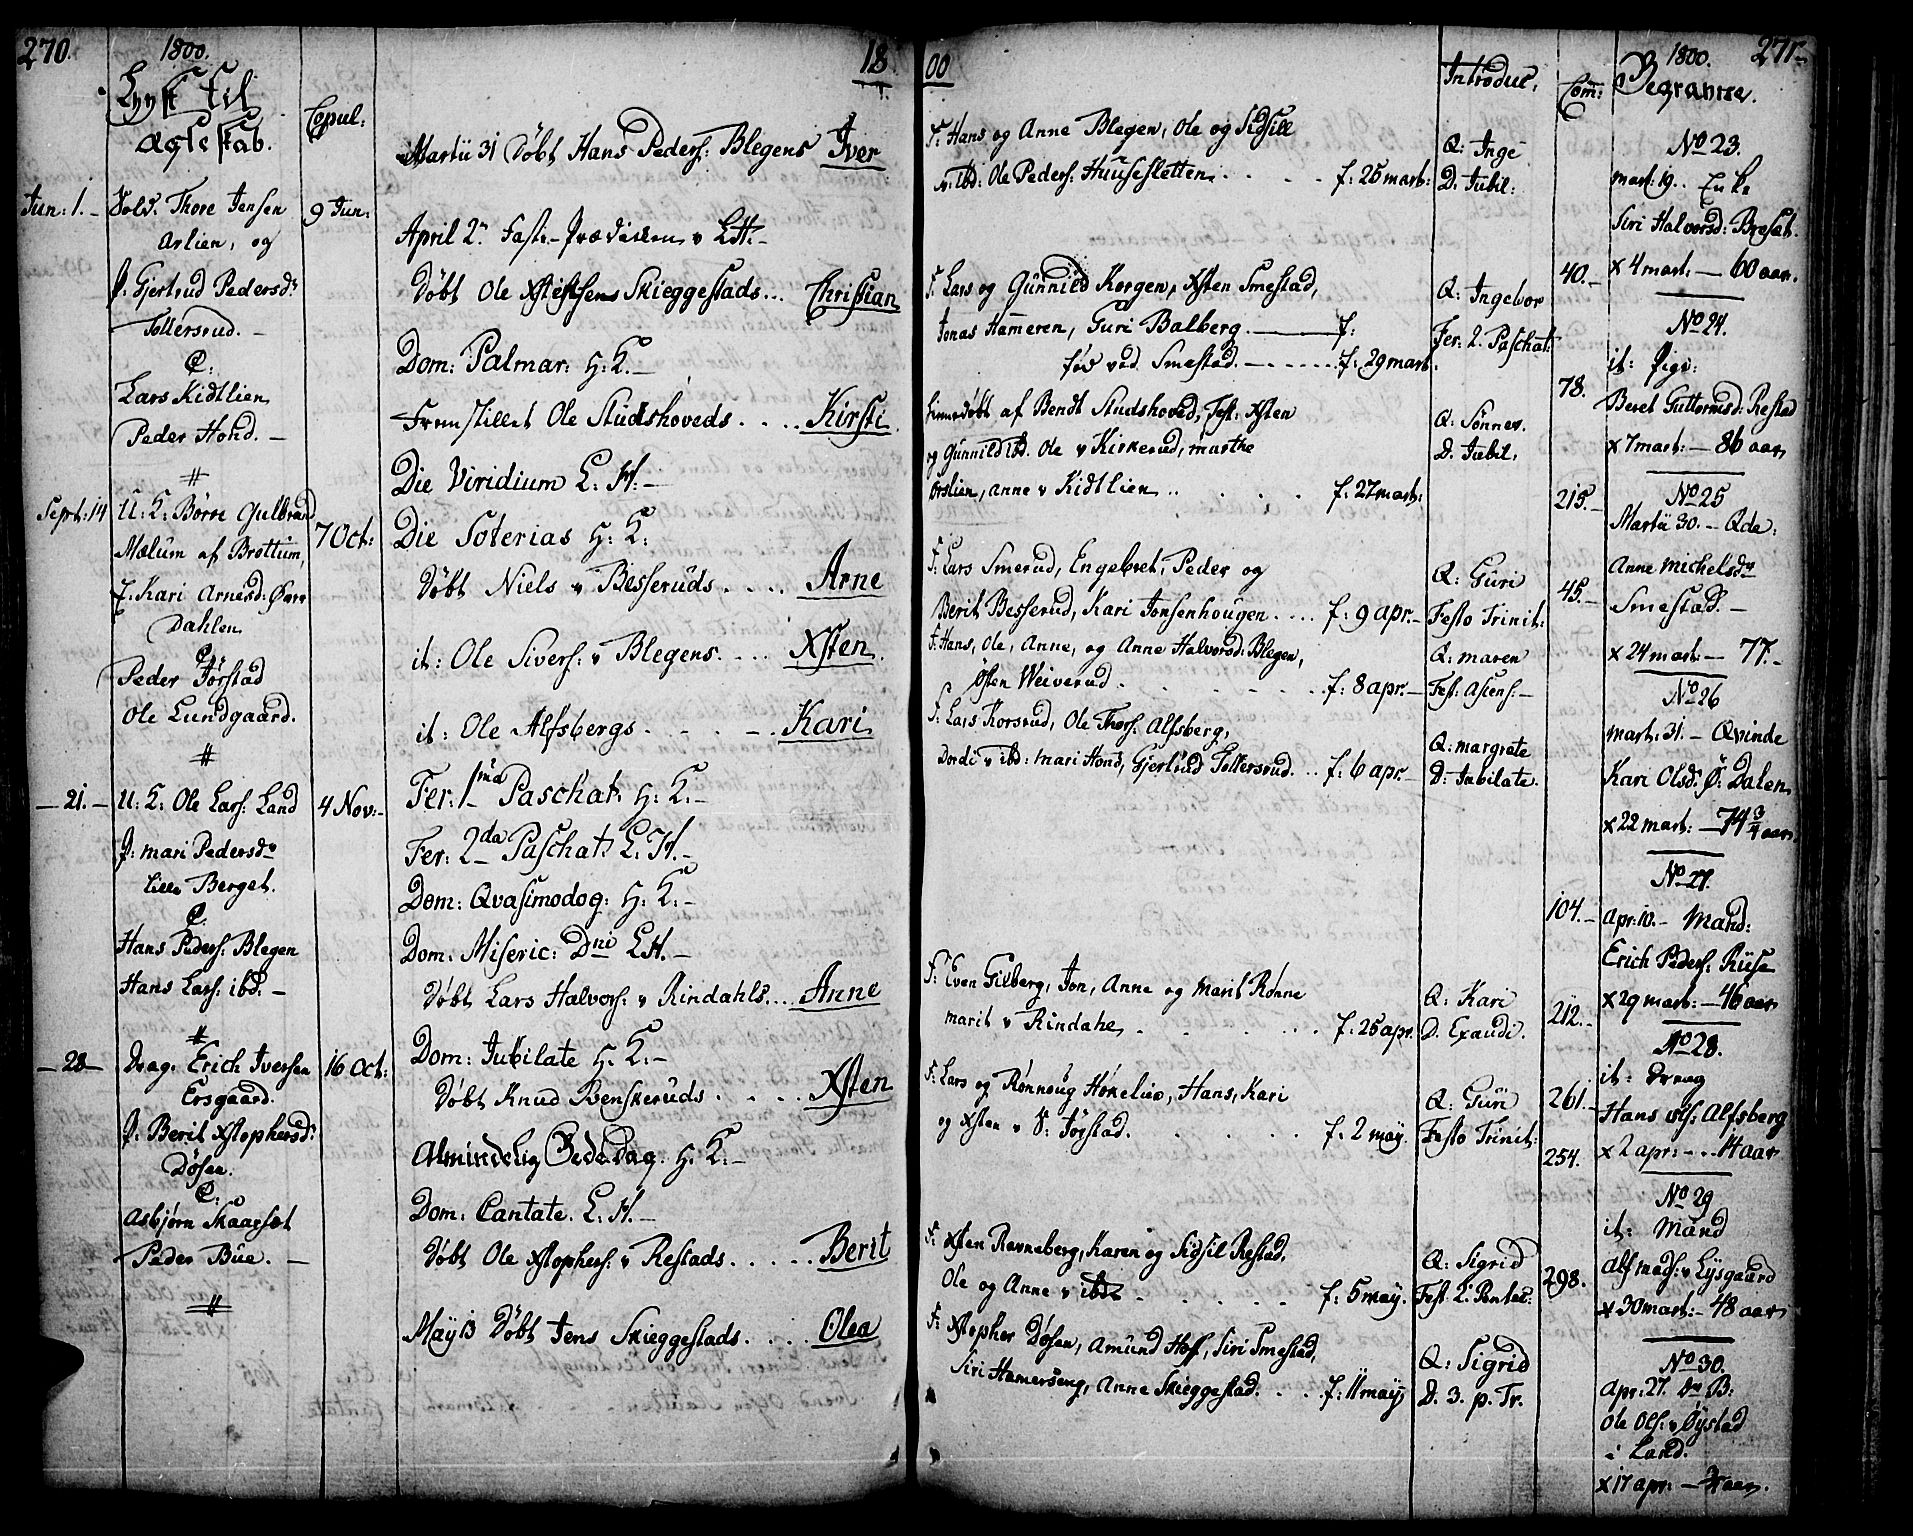 270.
1800.
Lyyst til
Ægteskab.
Copul:
Jun: 1. -
Sold. Thore Jensen
Arlien, og
P. Gjertrud Pedersdr
Tollersrud. -
C:
Lars Kidtlien
Peder Hond. -
#
9 Jun:
Sept: 14
U: K: Børre Gulbrand
Mælum af Brøttum,
P. Kari Arnesd: Øvre
Dahlen
C.
Peder Jørstad
Ole Lundgaard.
#
7 Oct:
- 21. -
U: K: Ole Lars: Land
P: Mari Pedersdr
Lille Berget.
C.
Hans Peders: Blegen
Hans Lars: ibd. -
#
4 Nov: -
- 28 -
Drag. Erich Iversen
Ersgaard.
P: Berit Xstophersdr
Døsen.
C:
Asbjørn Skaarset
Peder Bue. -
#
16 Oct:
18
Martii 31 Døbt Hans Peders: Blegens Iver
April 2. Faste-Prædiken v L. H. -
Døbt Ole Skieggestads... Christian
Dom: Palmar: H: K. -
Fremstillet Ole Studshoveds .... Kirsti
Die Viridium L: H: -
Die Soterias H: K:
Døbt Niels v Besseruds .... Arne
it: Ole Sivers: v Blegens .... Xsten
it: Ole Alfsbergs .... Kari
Fer: 1ma Paschat: H: K: -
Fer: 2da Paschat: L. H. -
Dom: Qvasimodog: H: K: -
Dom: Miseric: Dni L. H. -
Døbt Lars Halvors: v Rindahls... Anne
Dom: Jubilate H: K: -
Døbt Knud Benskeruds .... Xsten
Almindelig Bededag. H: K: -
Dom: Cantate. L: H. -
Døbt Ole Xstophers: v Restads..... Berit
May 13 Døbt Jens Skieggestads .... Olea
00
F: Hans og Anne Blegen, Ole og Sidsill
v ibd: Ole Peders: Huuseslettem .... f: 25 mart:
F. Lars og Gunnild Korgen, Xsten Smestad,
Jonas Hameren, Guri Balberg. f:
fød ved Smestad. - ..... f: 29 mart.
hiemedøbt af Bendt Studshoved, Test: Xsten
og Gunnild ibd. Ole v Kirkerud, Marthe
Orslien, Anne v Kidtlien .... f: 27 mart:
F: Lars Smerud, Engebret, Peder og
Berit Besserud, Kari Jonsenhougen .... f: 9 apr. -
F: Hans, Ole, Anne, og Anne Halvorsd: Blegen,
Østen Weiverud .... f: 8 apr. -
F: Lars Korsrud, Ole Thors: Alfsberg,
Dordi v ibd: Mari Hond, Gjertrud Tollersrud .. f: 6 apr. -
F: Even Gilberg, Jon, Anne og Marit Rønne
Marit v Rindahl .... f: 25 apr:
F: Lars og Rønnoug Høkelie, Hans, Kari
og Xsten v S: Jørstad. .... f. 2 may.
F: Xsten Ravneberg, Karen og Sidsil Restad,
Ole og Anne v ibd .... f: 5 may.
F: Xstopher Døsen, Amund Hoff, Siri Smestad,
Siri Hamerseng, Anne Skieggestad. .. f: 11 may,
Introduc.
Q: Inge
D. Jubil:
Q: Ingebor
Fer: 2. Paschat:
Q: Sønnev.
D. Jubil,
Q: Guri
Festo Trinit:
Q: Maren
Fest: Ascens: -
Q: Margrete
D: Jubilate.
Q: Kari
D. Exaudi.
Q: Guri
Festo Trinit:
Q: Sigrid
Fest. 2. Pentec:
Q: Sigrid
D. 3. p. Tr.
Com:
40. -
78.
215. -
45. -
104. -
212. -
261. -
254.
298.
1800.
271.
Begravne.
No 23.
mart: 19. Enke
Siri Halvorsd: Bresæt.
x 4 mart: - 60 aar.
No 24.
it: Pige:
Beret Guttormsd: Restad
x 7 mart: - 86 aar
No 25
Martii 30. - Qda:
Anne Michelsdr
Smestad. -
x 24 mart: - 77. -
No 26
mart: 31. - Qvinde
Kari Olsdr Ø: Dalen
x 22 mart: - 74 3/4 aar
No 27.
Apr: 10. - Mand:
Erich Peders: Riise
x 29 mart: - 46 aar
No 28.
it: Dreng
Hans Ols: Alfsberg
x 2 apr: - .. 14 aar
No 29
it: Mand
Alf Mads: v Lysgaard
x 30 mart: - 48 aar
No 30.
Apr: 27. Dr B:
Ole Ols: v Øystad
i Land.
x 17 apr: - aar.